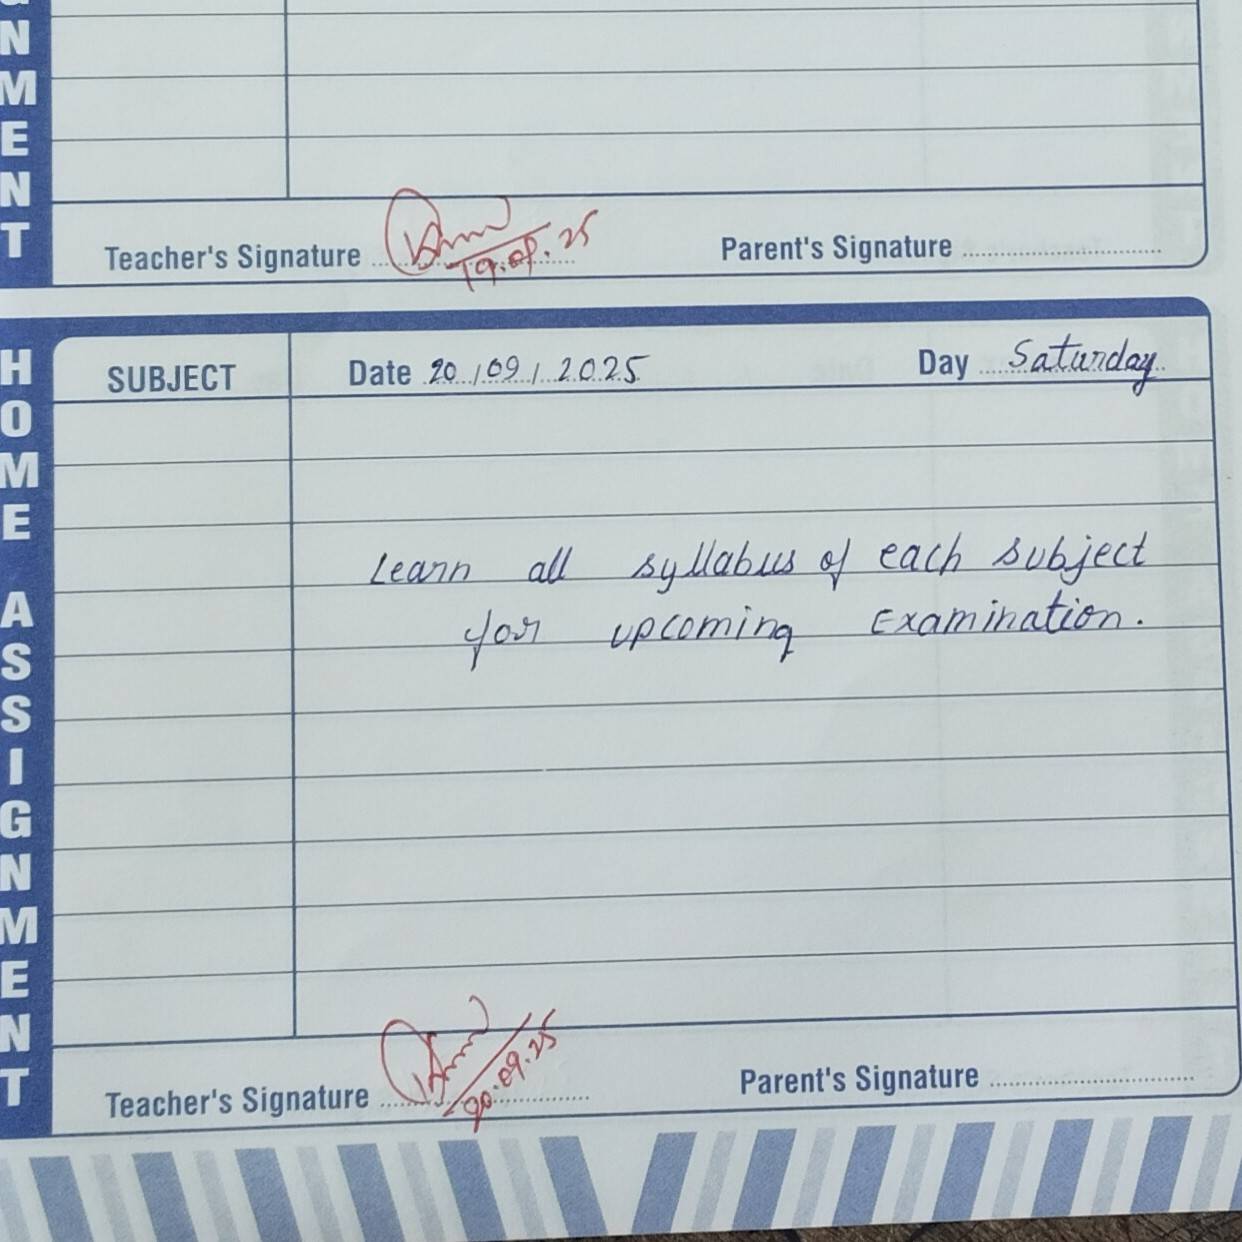 NMENT
Teacher's Signature 19.09.25 Parent's Signature
HOME ASSIGNMENT
SUBJECT Date 20/09/2025 Day Saturday
Learn all syllabus of each subject
for upcoming Examination.
Teacher's Signature 20.09.25 Parent's Signature